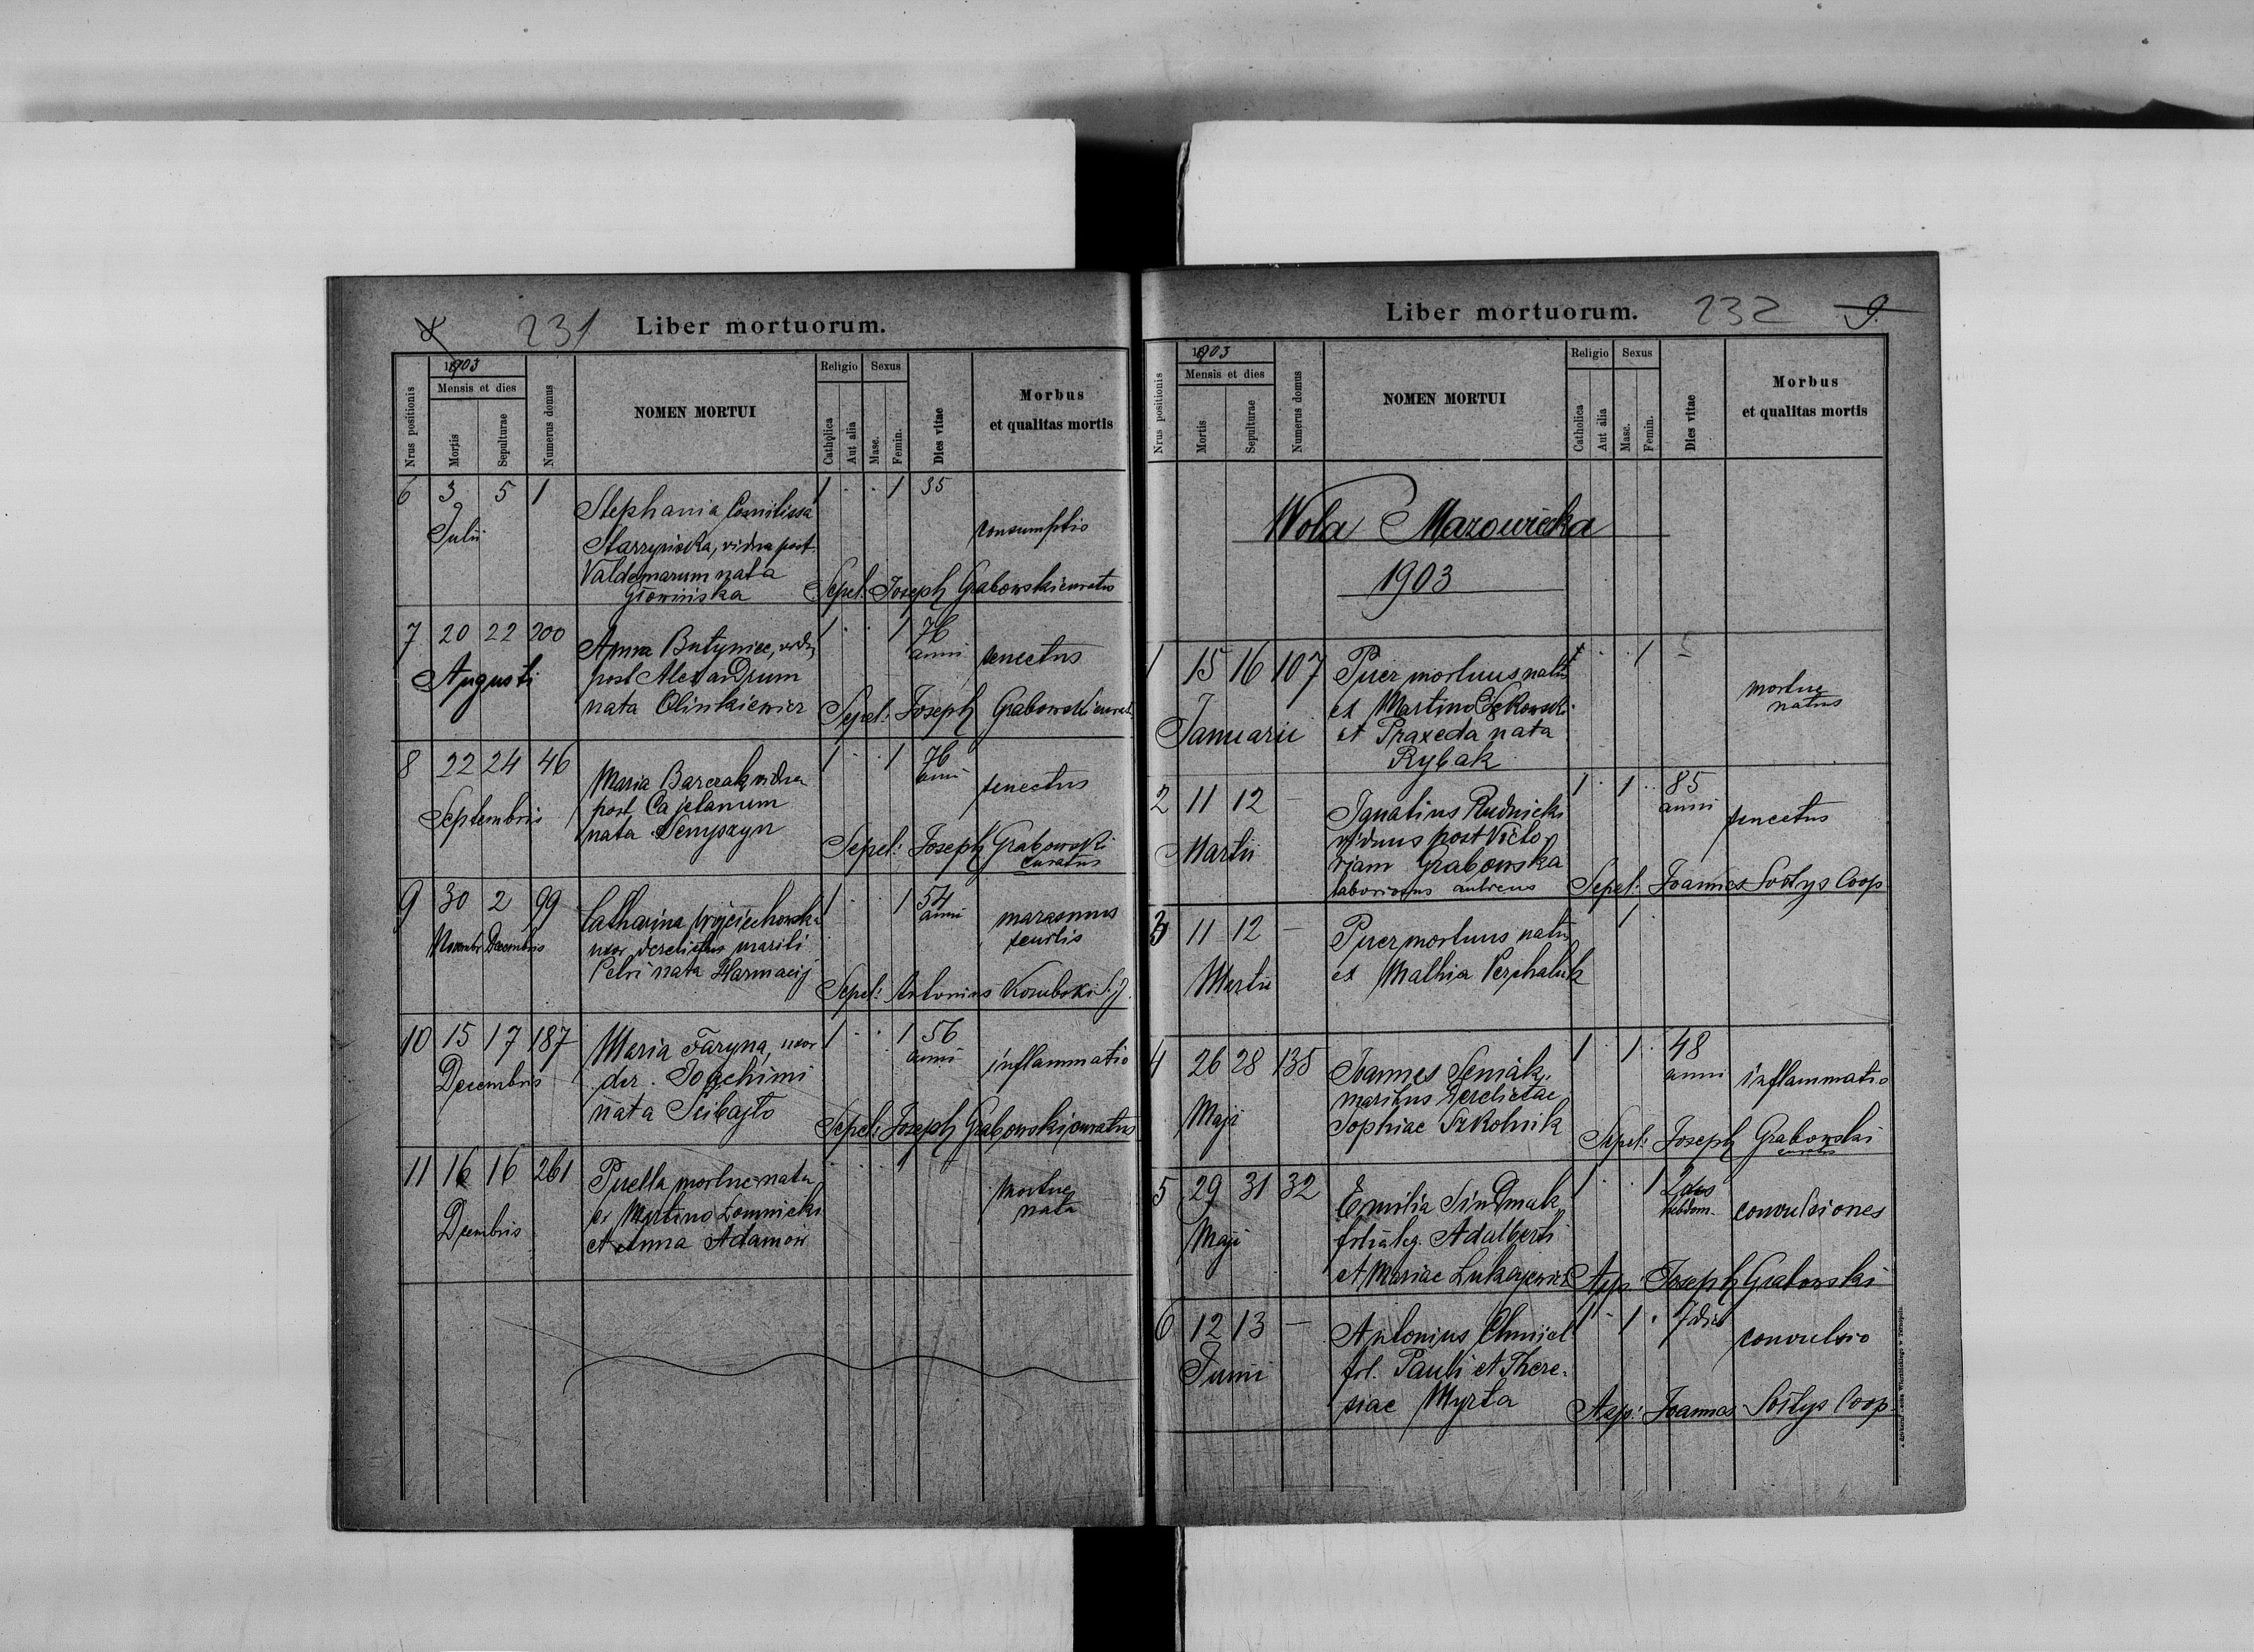 8 231 Liber mortuorum.
1903
Mensis et dies
Nrus positionis Mortis Sepulturae Numerus domus NOMEN MORTUI Religio Sexus Catholica Aut alia Masc. Femin. Dies vitae Morbus
et qualitas mortis
6 3 5 1 Stephania Comitissa 1 . . 1 35
Julii Starzyńska, vidua post consumptio
Valdemarum nata
Głowińska Sepel: Joseph Grabowski curatus
7 20 22 200 Anna Butyniec, vidua 1 . . 1 76
anni senectus
Augusti post Alexandrum
nata Olinkiewicz Sepel: Joseph Grabowski curat
8 22 24 46 Maria Barczak vidua 1 . . 1 76
anni senectus
Septembris post Cajetanum
nata Semyszyn Sepel: Joseph Grabowski
curatus
9 30 2 99 Catharina Wojciechowska 1 . . 1 54
anni marasmus
Novembr Decembris uxor derelictus mariti senilis
Petri nata Harmacij
Sepel: Antonius S. J.
10 15 17 187 Maria Faryna, uxor 1 . . 1 56
anni inflammatio
Decembris der. Joachimi
nata Scibajło Sepel: Joseph Grabowski curatus
11 16 16 261 Puella mortue nata . . . 1 mortue
nata
Decembris ex Martino Łomnicki
et Anna Adamów
Liber mortuorum. 232 9.
1903
Mensis et dies
Nrus positionis Mortis Sepulturae Numerus domus NOMEN MORTUI Religio Sexus Catholica Aut alia Masc. Femin. Dies vitae Morbus
et qualitas mortis
Wola Mazowiecka
1903
1 15 16 107 Puer mortuus natus . . 1 mortue
natus
Januarii ex Martino
et Praxeda nata
Rybak
2 11 12 — Ignatius Rudnicki 1 . 1 . 85
anni senectus
Martii viduus post Victo
riam Grabowska
laboriosus Sepel: Joannes Sołtys Coop
3 11 12 — Puer mortuus natus 1
Martii ex Mathia Perchaluk
4 26 28 138 Joannes Semak, 1 . 1 . 48
anni inflammatio
Maji maritus derelictae
Sophiae Szkolnik Sepel: Joseph Grabowski
curatus
5 29 31 32 Emilia Sindmak 1 . . 1 2
hebdom. convulsiones
Maji filia leg. Adalberti
et Mariae Lukajewicz Asp: Joseph Grabowski
6 12 13 — Antonius Chmiel 1 . 1 . 7 dies convulsio
Junii fil. Pauli et There-
siae Myrta Asp: Joannes Sołtys Coop